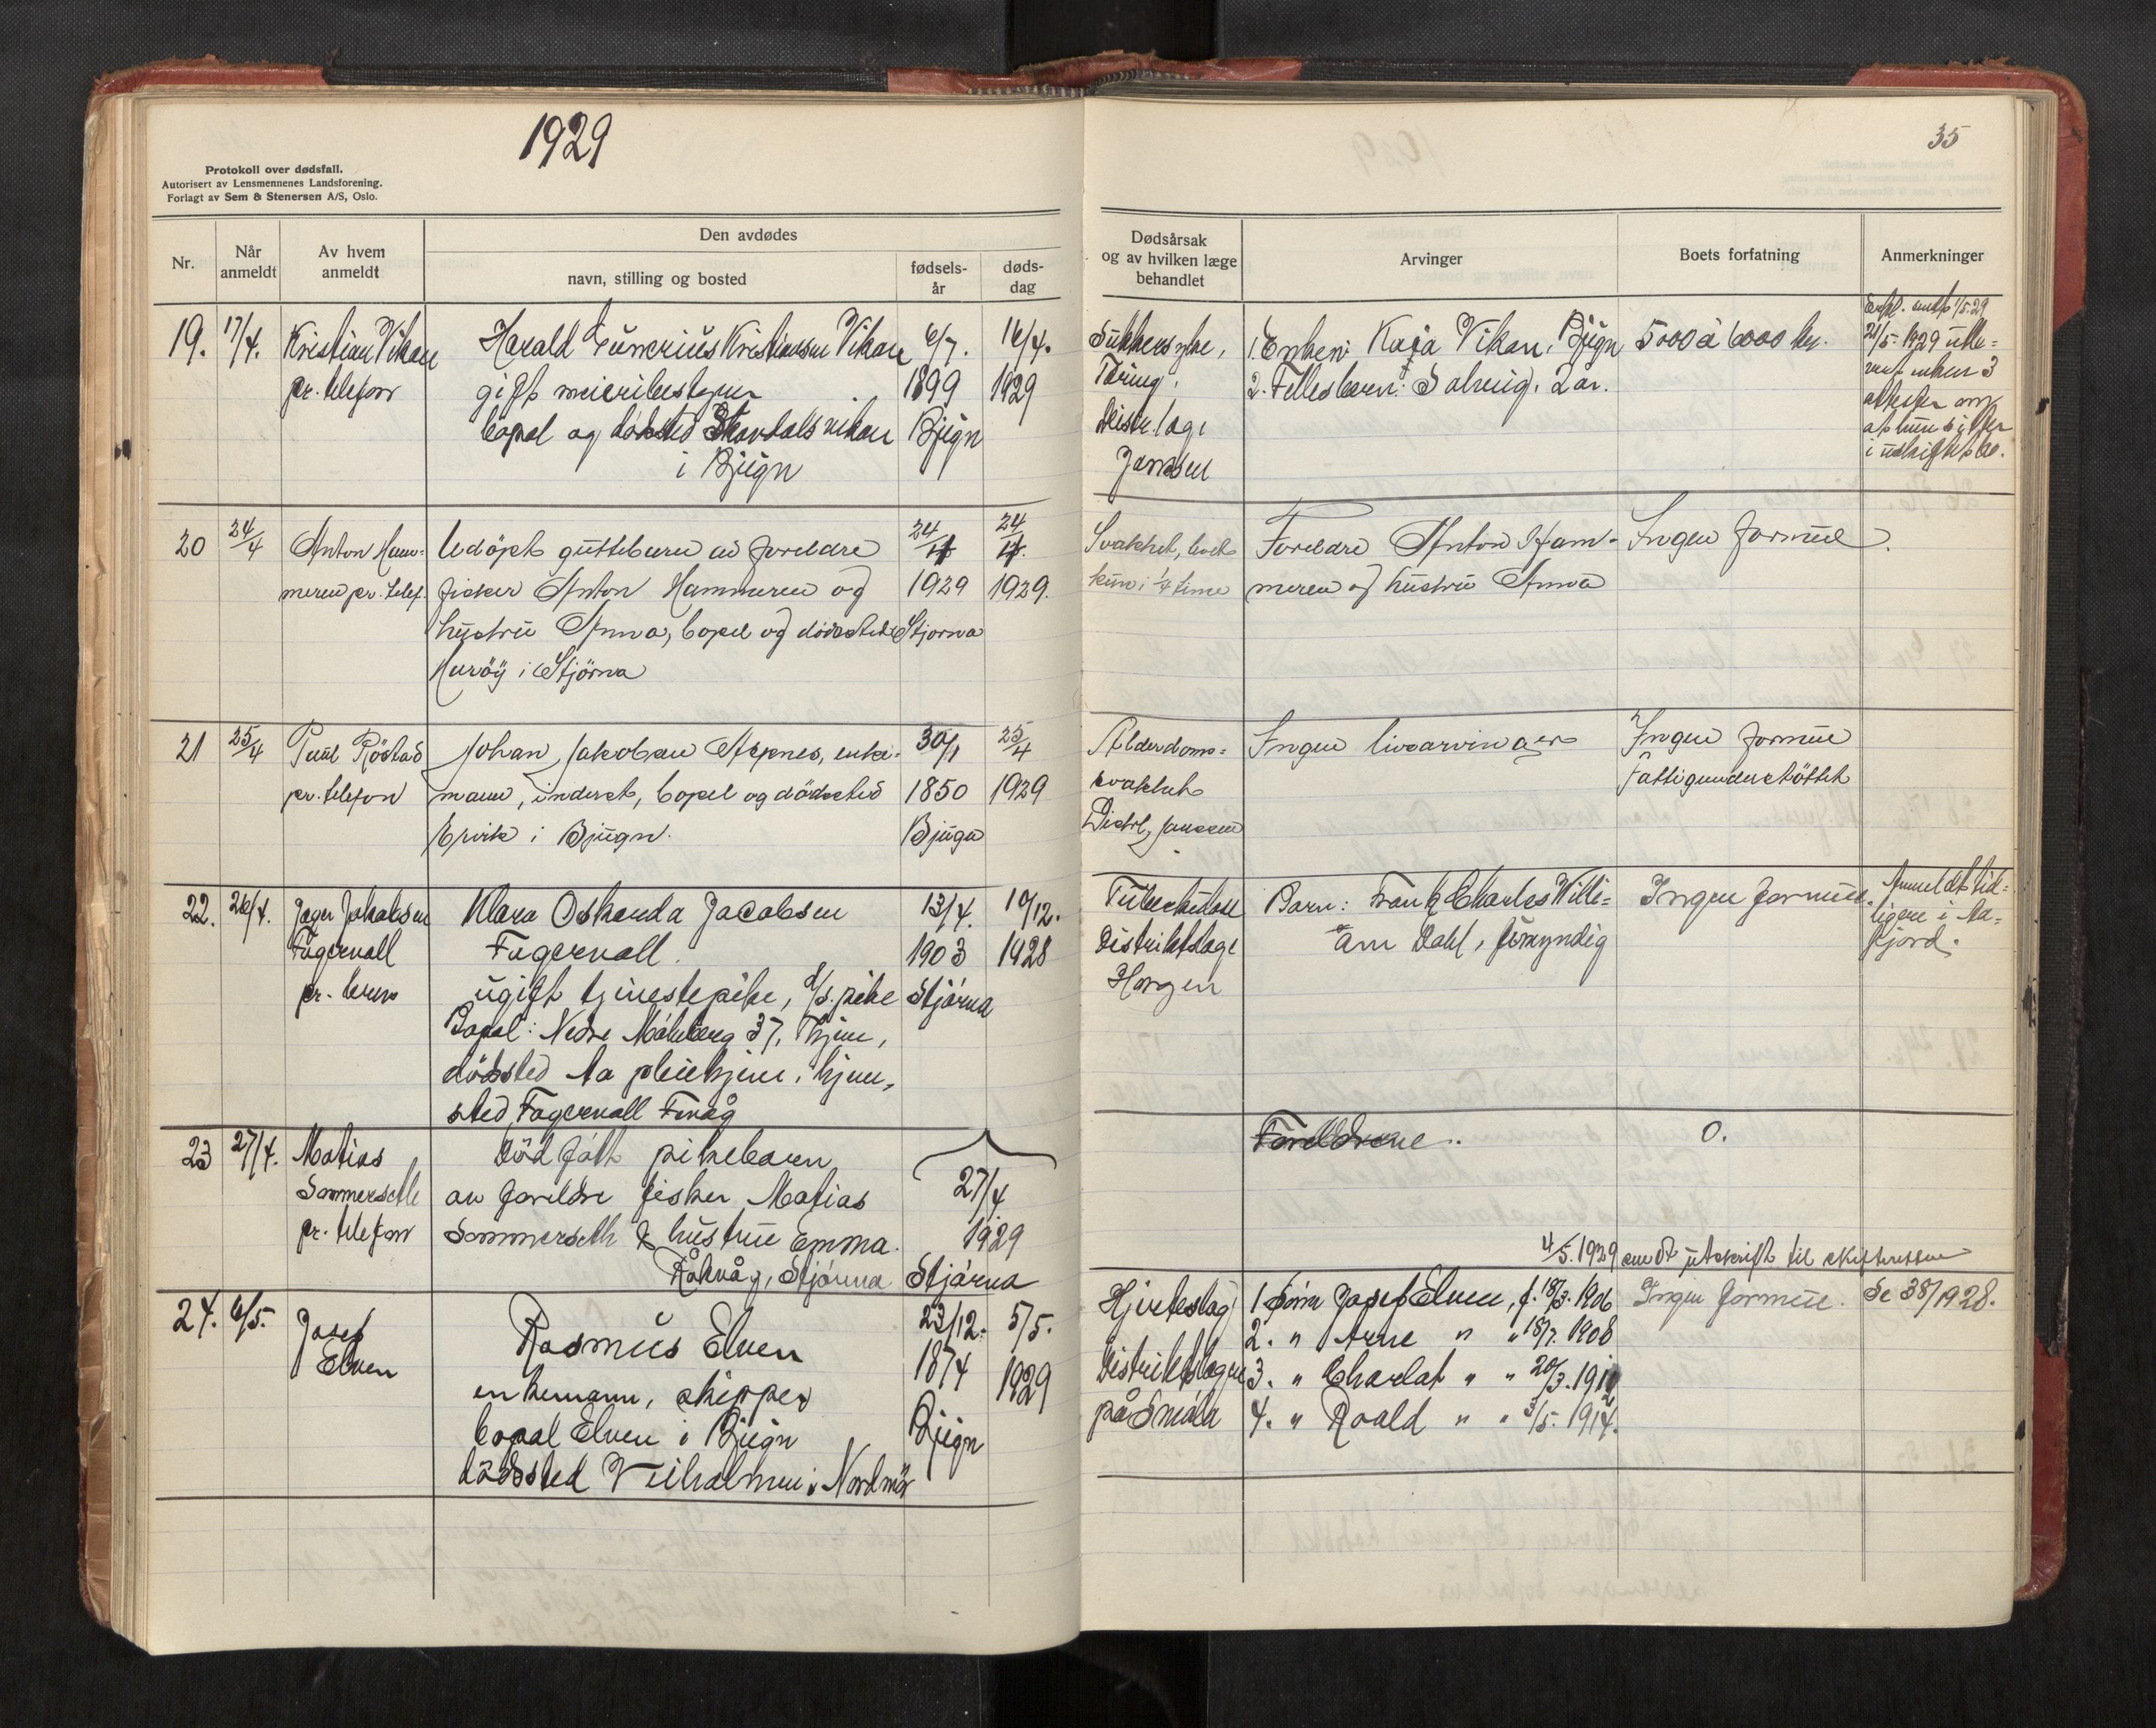 1929
35
Protokoll over dødsfall.
Autorisert av Lensmennenes Landsforening.
Forlagt av Sem & Stenersen A/S, Oslo.
Nr.
Når anmeldt
Av hvem anmeldt
Den avdødes
navn, stilling og bosted
fødsels-
år
døds-
dag
Dødsårsak
og av hvilken læge
behandlet
Arvinger
Boets forfatning
Anmerkninger
19. 17/4. Kristian Vikan
pr. telefon
Harald Gunerius Kristiansen Vikan
gift meieribestyrer
bopal og dødsted Skavdalsvikan
i Bjugn
6/7.
1899
Bjugn
16/4.
1929
Sukkersyke,
Tæring,
Distr. læge
Janssen
1. Enken: Kaja Vikan, Bjugn
2. Fellesbarn: Solveig, 2 år.
5000 à 6000 kr.
21/5-1929 utle-
vert enken 3
attester om
at hun sitter
i uskiftet bo.
20 24/4 Anton Ham-
meren pr. telef.
Udöpt guttebarn av foreldre
fisker Anton Hammeren og
hustru Anna, bopel og dödssted
i Stjörna
24/4
1929
Stjorna
24/4.
1929.
Svakhet, levet
kun i 1/4 time
Foreldre Anton Ham-
meren og hustru Anna
Ingen formue.
21 25/4 Paul Röstad
pr. telefon
Johan Jakobsen Aspnes, enke-
mann, inderst, bopel og dödssted
Ervik i Bjugn.
30/1
1850
Bjugn
25/4
1929
Alderdoms-
svakhet
Distrl. Janssen
Ingen livsarvinger
Ingen formue
Fattigunderstöttet
22. 26/4. Jager Jakobsen
Fagervoll
pr. brev
Klara Oskanda Jacobsen
Fagervoll.
ugift tjenestepike, d/s. pike
Bopal: Nedre Møllenberg 37, Thjem,
dödssted Aa pleiehjem, hjem-
sted Fagervoll Fevåg
13/4.
1903
Stjørna
10/12.
1928
Tuberkulose
Distriktslæge
Horgen
Barn: Frank Charles Willi-
am Dahl, umyndig
Ingen formue.
Anmeldt tid-
ligere i Aa-
fjord.
23 27/4. Matias
Sommerseth
pr. telefon
Död født pikebarn
av foreldre fisker Matias
Sommerseth & hustru Emma.
Råkvåg, Stjørna
27/4
1929
Stjørna
Foreldrene..
0.
4/5.1929 sendt utskrift til skifteretten
24. 6/5. Josef
Elven
Rasmus Elven
enkemann, skipper
bopal Elven i Bjugn
dødssted Veiholmen i Nordmör
23/12.
1874
Bjugn
5/5.
1929
Hjerteslag
Distriktslægen
på Smøla
1. Sønn Josef Elven, f. 18/3. 1906
2. " Arne " " 18/7. 1908
3. " Charlot " " 20/3. 1910
4. " Roald " " 3/5. 1914.
Ingen formue.
Se 38/1928.